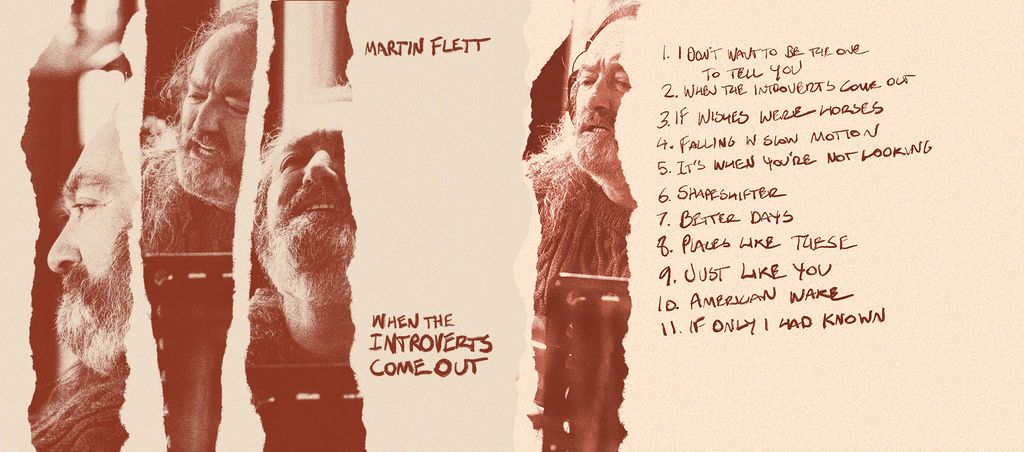 MARTIN FLETT
WHEN THE
INTROVERTS
COME OUT
1. I DON'T WANT TO BE THE ONE
TO TELL YOU
2. WHEN THE INTROVERTS COME OUT
3. IF WISHES WERE HORSES
4. FALLING IN SLOW MOTION
5. IT'S WHEN YOU'RE NOT LOOKING
6. SHAPESHIFTER
7. BETTER DAYS
8. PLACES LIKE THESE
9. JUST LIKE YOU
10. AMERICAN WAKE
11. IF ONLY I HAD KNOWN